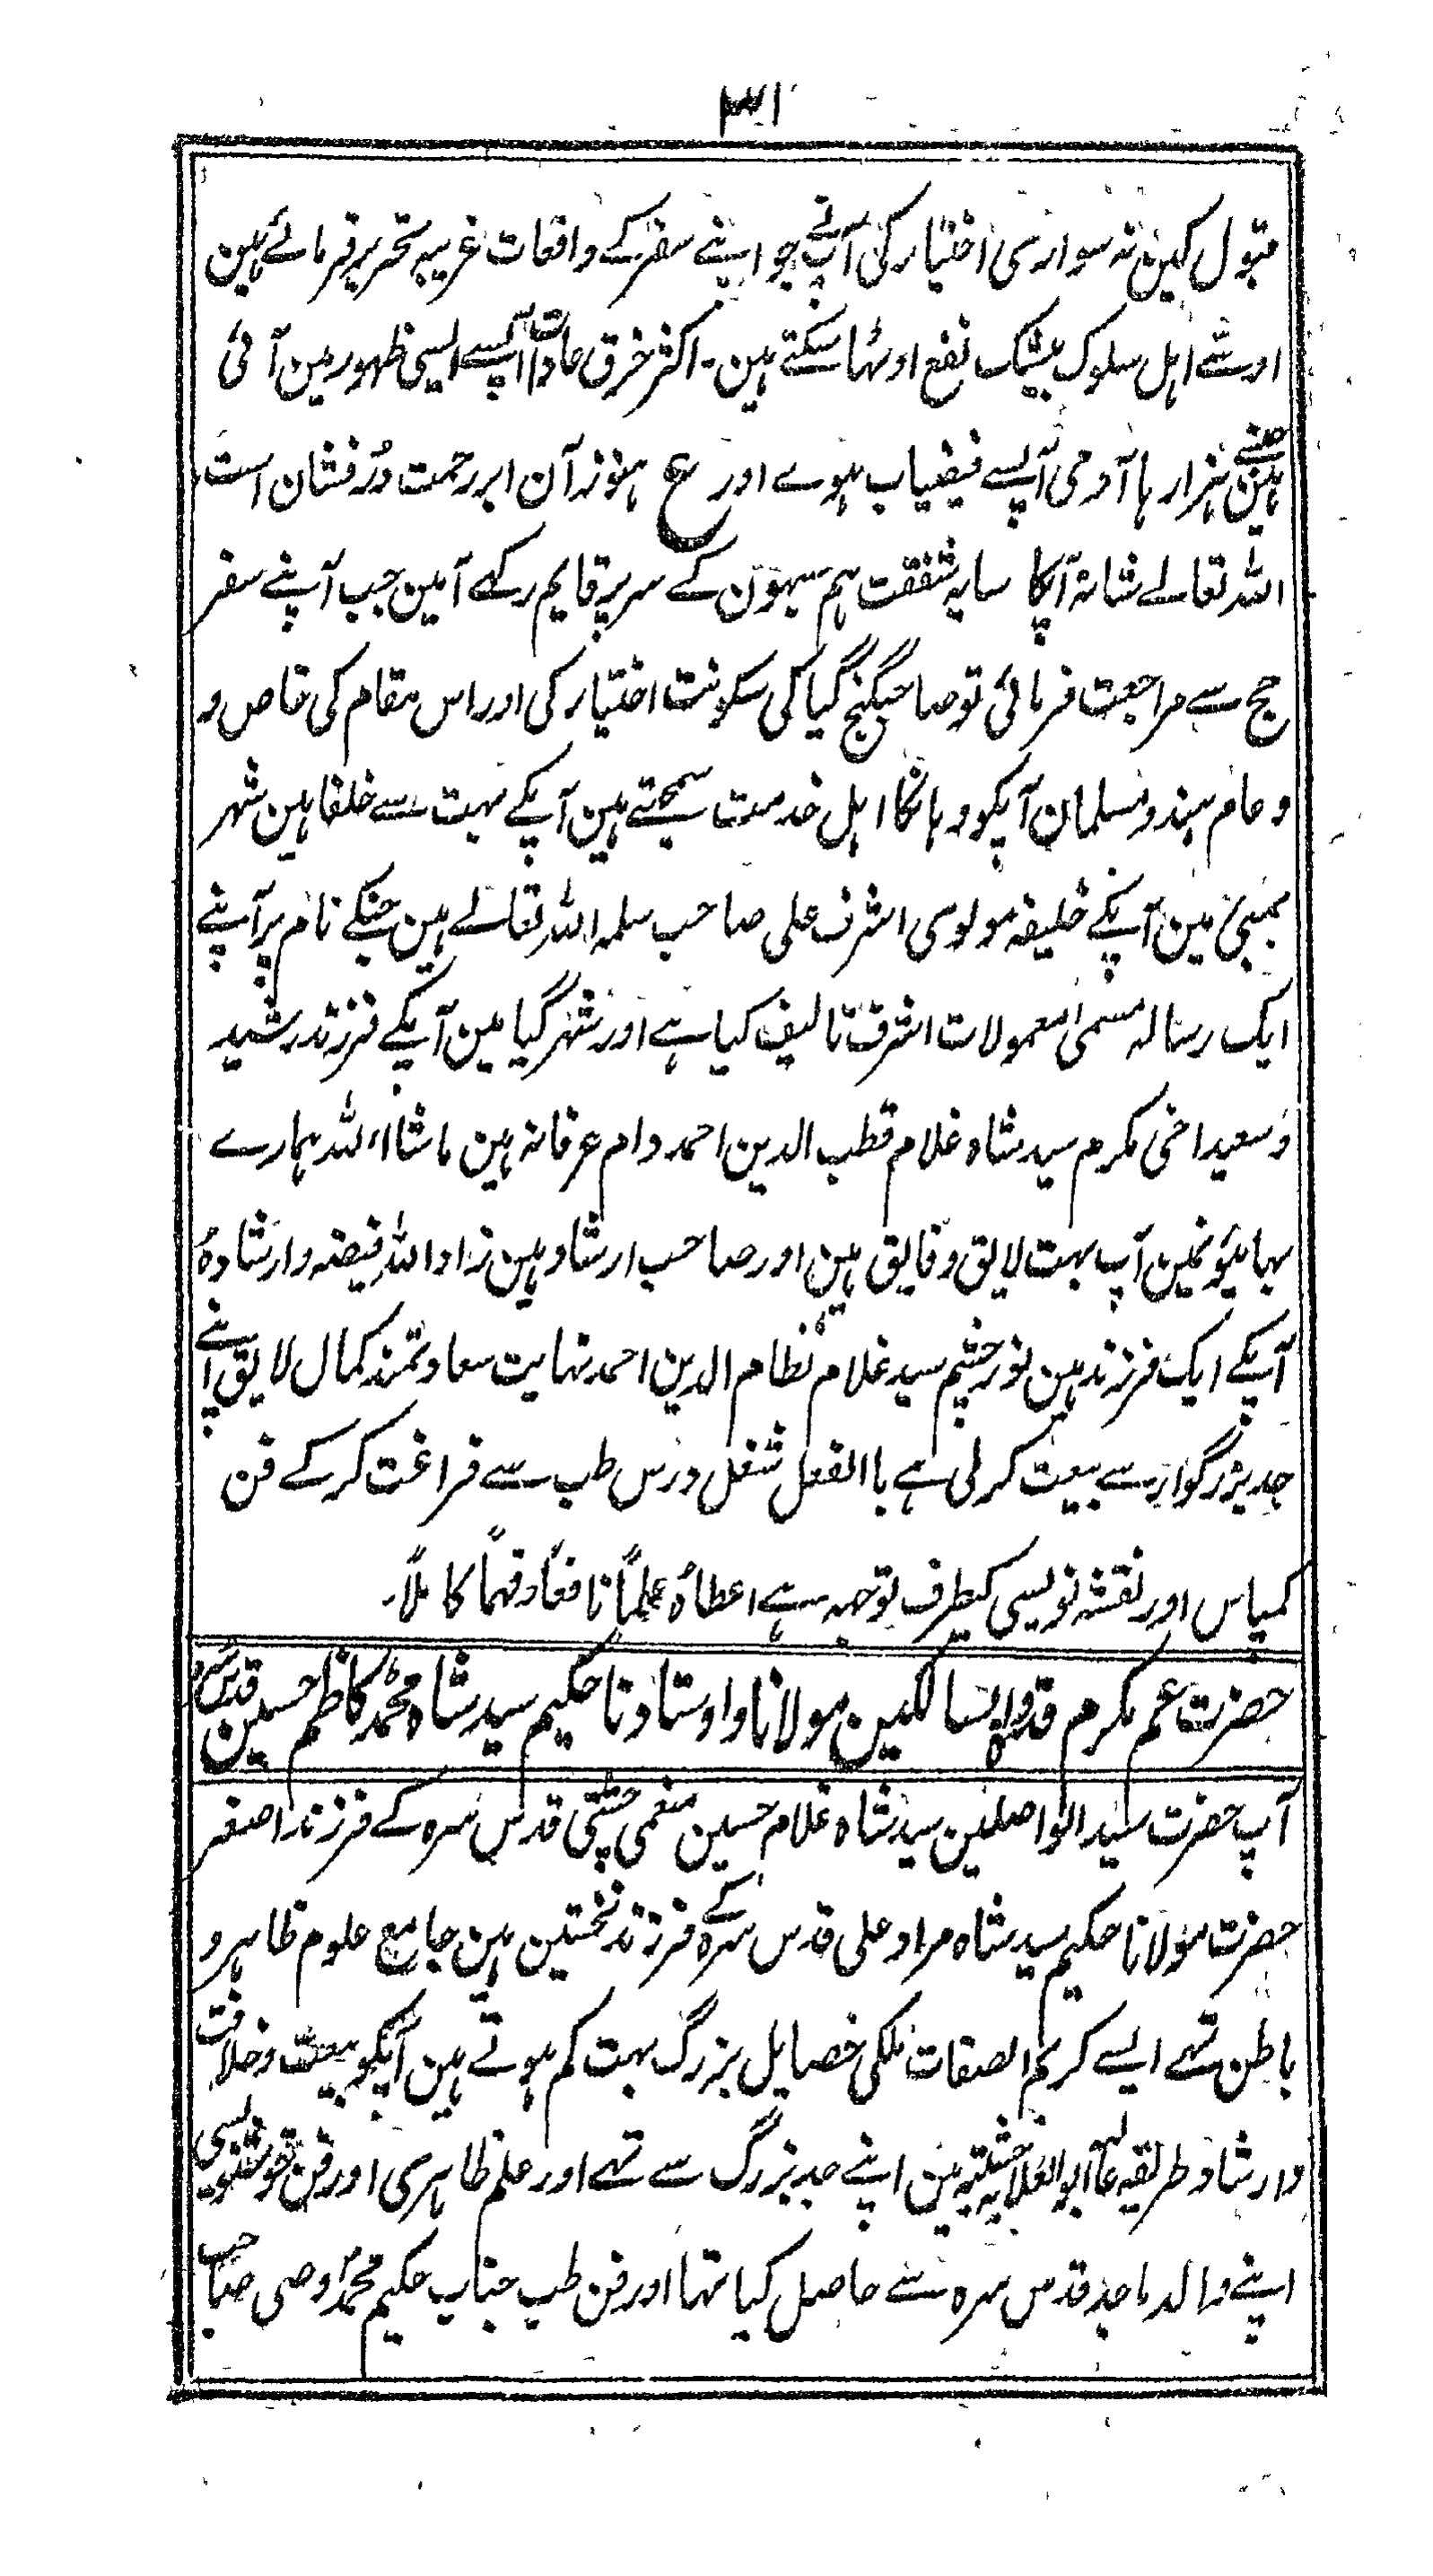 ۳۱
قبول کین نہ سواری اختیار کی آپنے جو اپنے سفر کے واقعات غریبہ تحریر فرمائے ہین
اوسّے اہل سلوک بیشک نفع اوٹہا سکتے ہین۔ اکثر خرق عادات آپسے ایسی ظہور مین آئی
ہین جنسے ہزارہا آدمی آپسے فیضیاب ہوے اور ع ہنوز آن ابر رحمت دُرفشان است
اللہ تعالے شانہ آپکا سایہ شفقت ہم سبہون کے سر پر قایم رکہے آمین جب آپنے سفر
حج سے مراجعت فرمائی تو صاحبگنج گیا کی سکونت اختیار کی اور اس مقام کی خاص و
و عام ہندو مسلمان آپکو وہانکا اہل خدمت سمجہتے ہین آپکے بہت سے خلفا ہین شہر
بمبئی مین آپکے خلیفہ مولوی اشرف علی صاحب سلمہ اللہ تعالے ہین جنکے نام پر آپنے
ایک رسالہ مسمی معمولات اشرف تالیف کیا ہے اور شہر گیا مین آپکے فرزند رشید
و سعید اخی مکرم سید شاہ غلام قطب الدین احمد دام عرفانہ ہین ماشاءاللہ ہمارے
بہائیونمین آپ بہت لایق و فایق ہین اور صاحب ارشاد ہین زاد اللہ فیضہ وارشادہُ
آپکے ایک فرزند ہین نور چشم سید غلام نظام الدین احمد نہایت سعادتمند کمال لایق اپنے
جد بزرگوار سے بیعت کر لی ہے باالفعل شغل درس طب سے فراغت کر کے فن
کمپاس اور نقشہ نویسی کیطرف توجہہ ہے اعطاہُ علماً نافعاً و فہماً کاملاً۔
حضرت عم مکرم قدوۃ السالکین مولانا و اوستادنا حکیم سید شاہ محمد کاظم حسین قدس سرہ
آپ حضرت سید الواصلین سید شاہ غلام حسین منعمی چشتی قدس سرہ کے فرزند اصغر
حضرت مولانا حکیم سید شاہ مراد علی قدس سرہ کے فرزند نخستین ہین جامع علوم ظاہر و
باطن تہے ایسے کریم الصفات ملکی خصایل بزرگ بہت کم ہوتے ہین آپکو بیعت و خلافت
وارشاد طریقہ عالیہ ابوالعلائیہ چشتیہ مین اپنے جد بزرگ سے تہے اور علم ظاہری اور فن خوشنویسی
اپنے والد ماجد قدس سرہ سے حاصل کیا تہا اور فن طب جناب حکیم محمد وصی صاحب